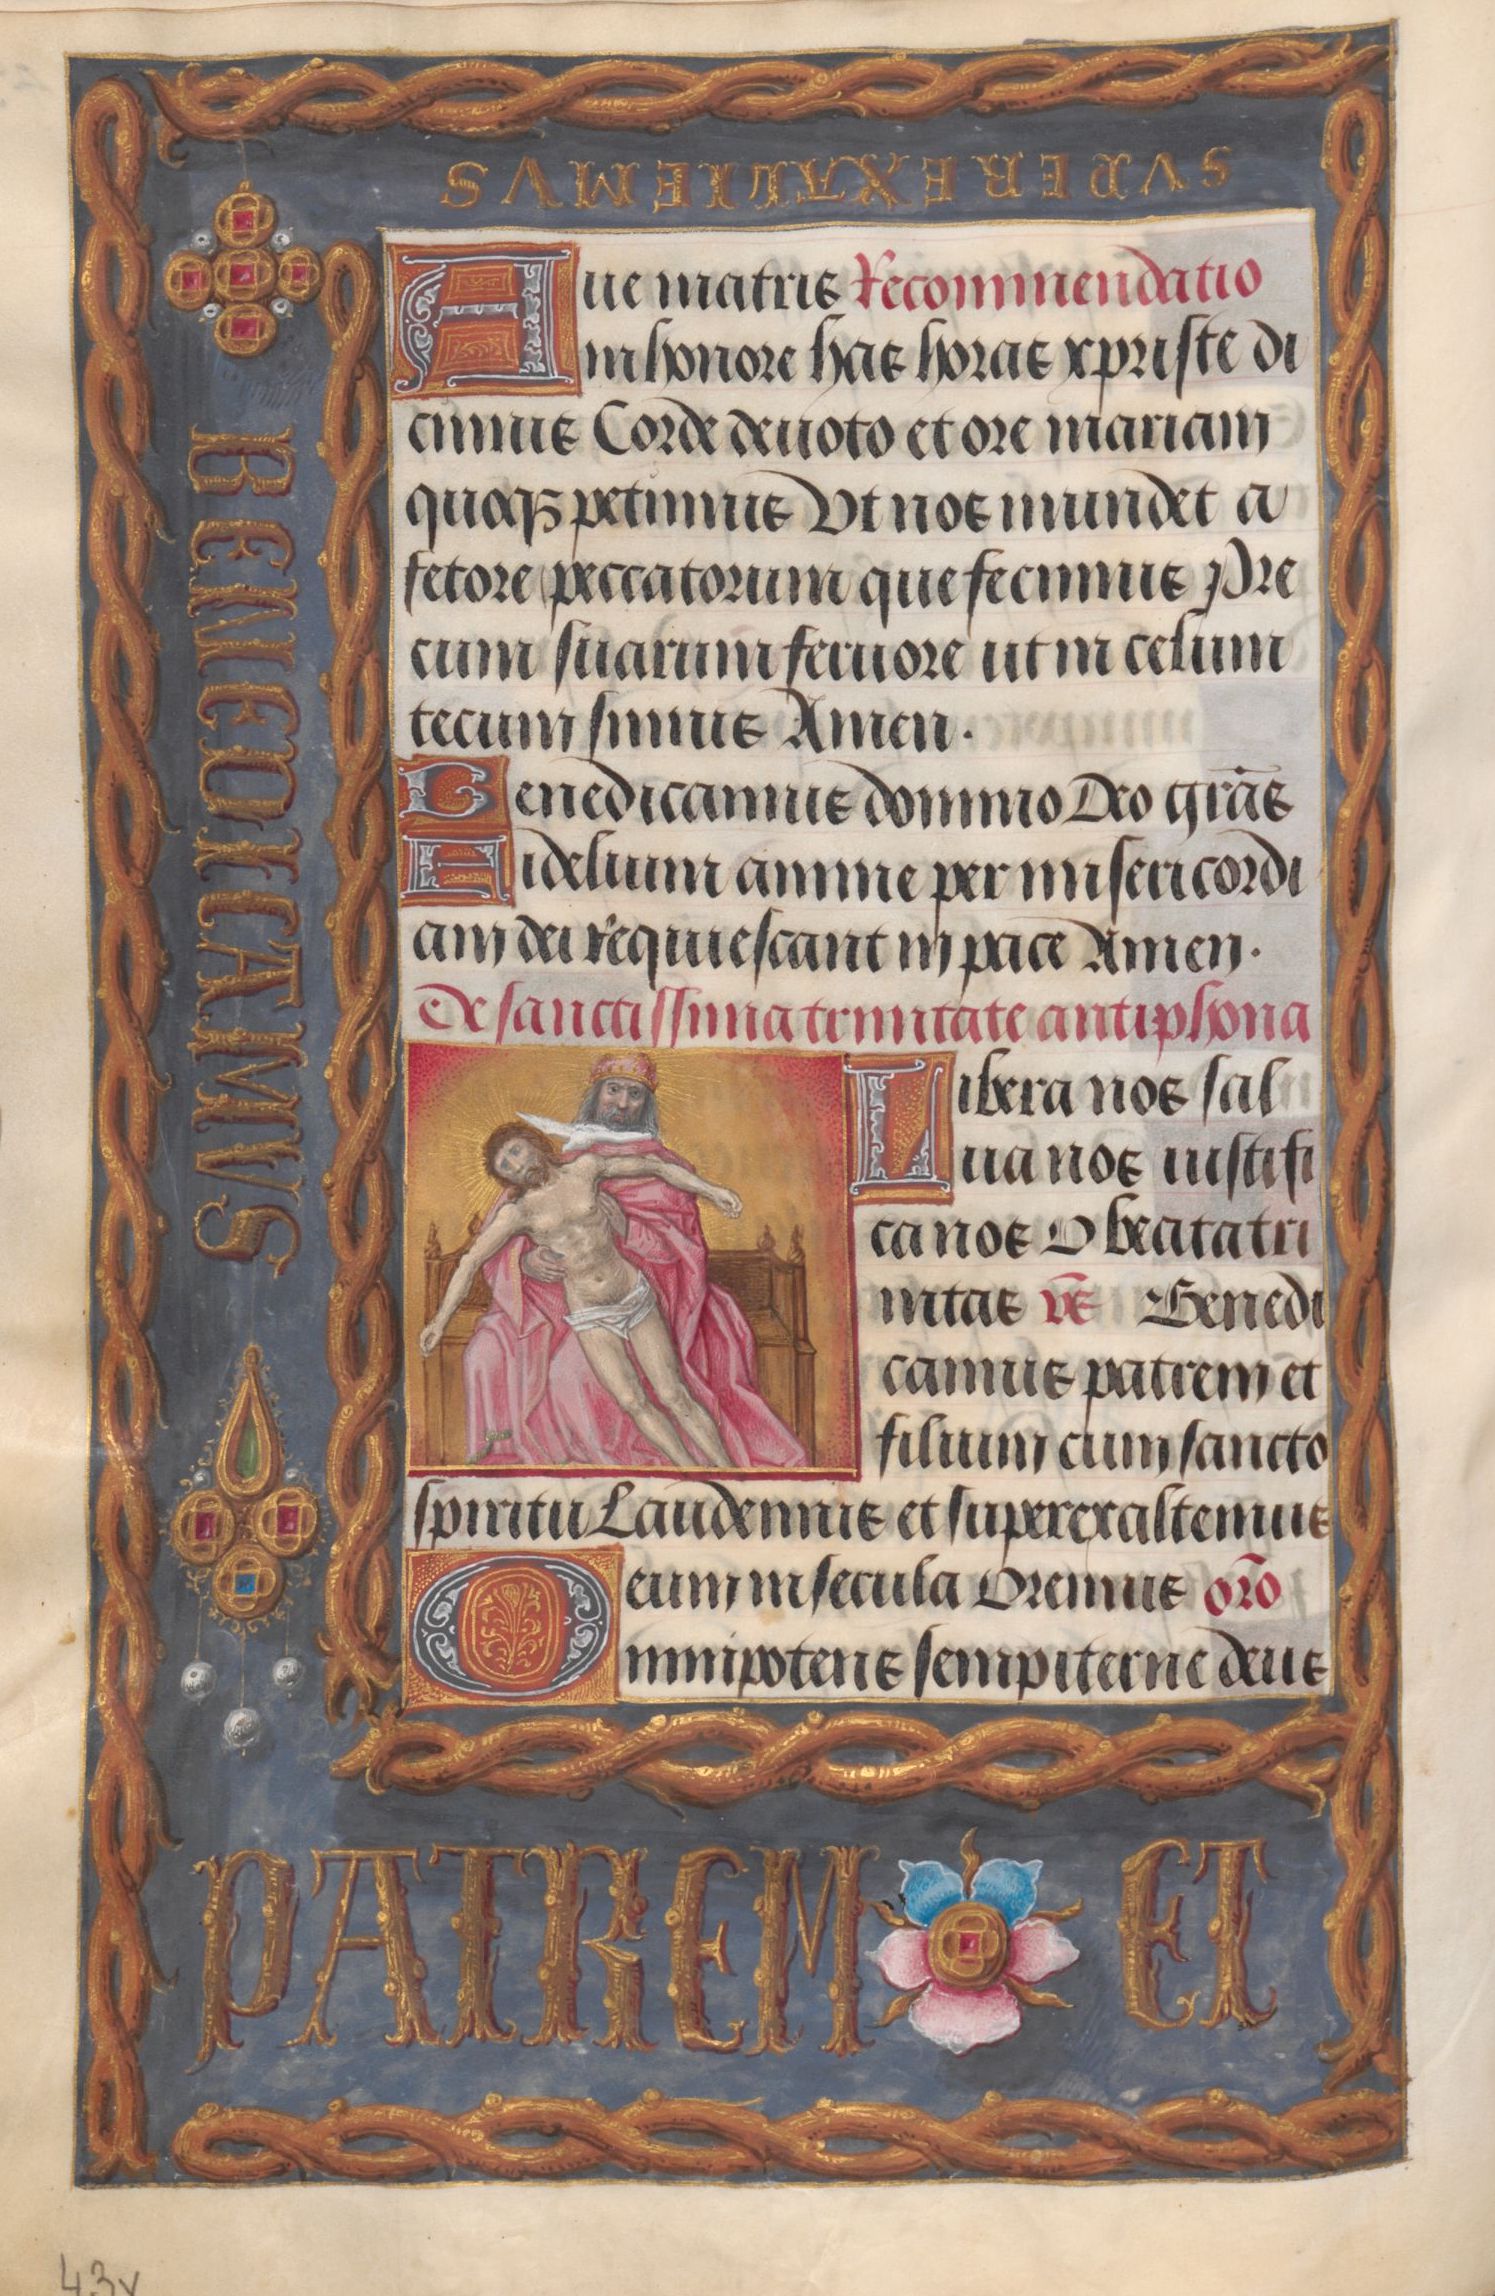 SVPEREXALTEMVS
Aue matris Recommendatio
in honore has horas xpriste di
cimus Corde deuoto et ore mariam
quoqz petimus Vt nos mundet a
fetore peccatorum que fecimus Pre
cum suarum feruore ut in celum
tecum simus Amen.
Benedicamus domino Deo grās
Fidelium anime per misericordi
am dei requiescant in pace Amen.
De sanctissima trinitate antiphona
Libera nos sal
ua nos iustifi
ca nos O beata tri
nitas vs Benedi
camus patrem et
filium cum sancto
spiritu Laudemus et superexaltemus
eum in secula Oremus orō
Omnipotens sempiterne deus
BENEDICAMVS
PATREM ET
43v